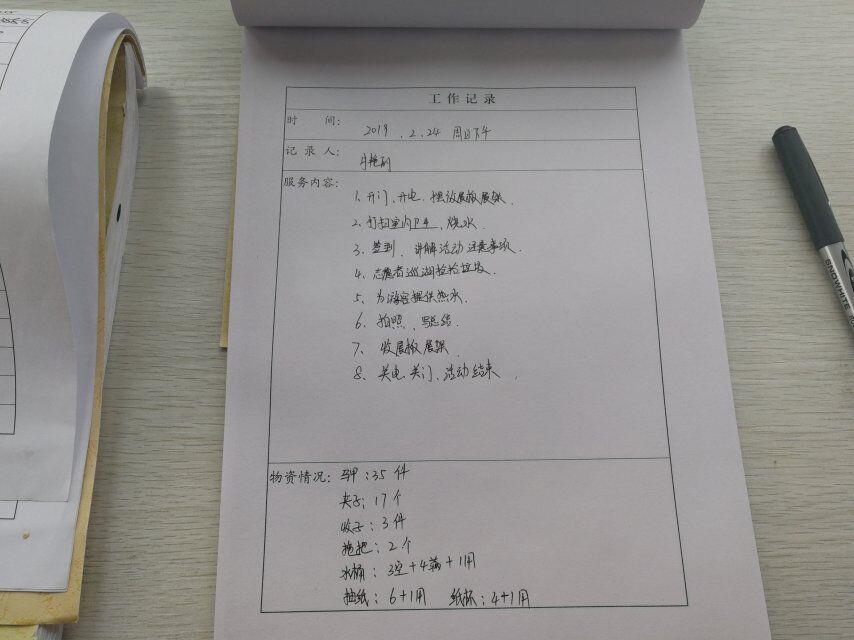 工作记录
时 间: 2019.2.24 周日下午
记录人:
服务内容: 1、开门、开电、摆放展板展架.
2、打扫室内卫生、烧水.
3、签到、讲解活动注意事项.
4、志愿者巡湖捡拾垃圾.
5、为游客提供热水.
6、拍照、写总结.
7、收展板展架.
8、关电、关门、活动结束.
物资情况: 马甲:35件
夹子:17个
:3件
拖把:2个
水桶:3空+4满+1用
抽纸:6+1用 纸杯:4+1用
SNOWHITE